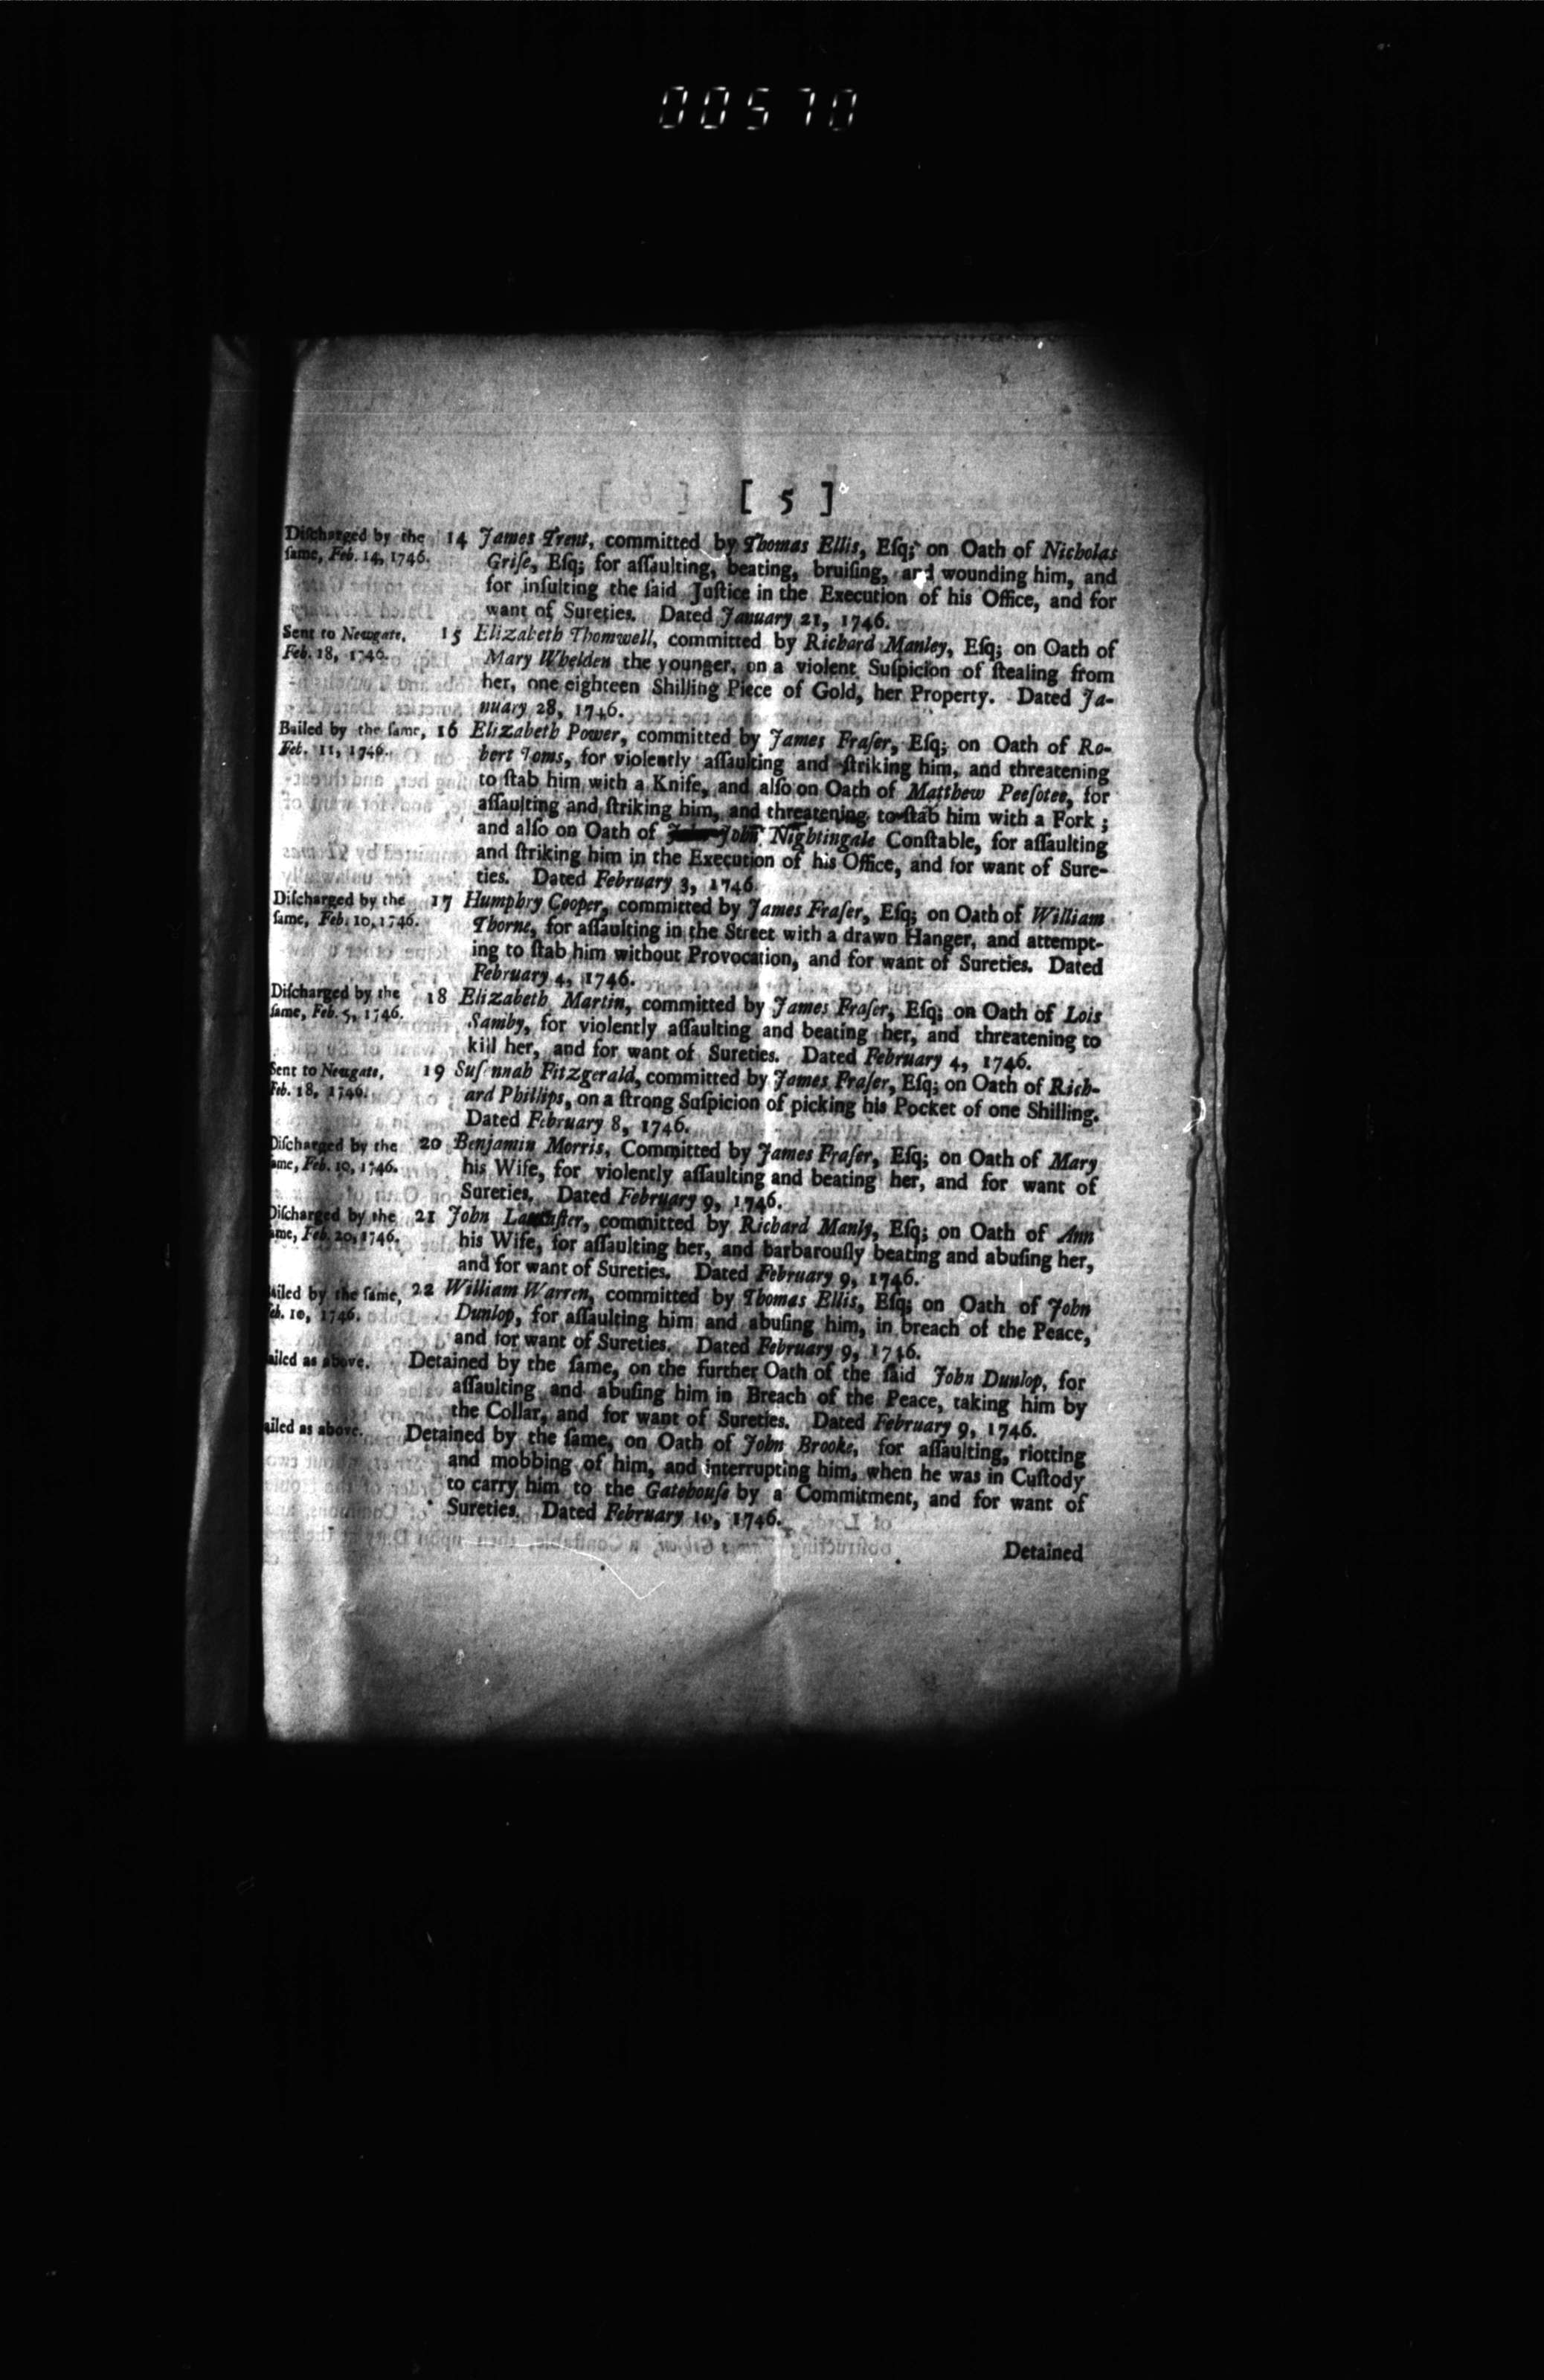 00570
[ 5 ]
Diſcharged by the
ſame, Feb. 14, 1746.
14 James Trent, committed by Thomas Ellis, Eſq; on Oath of Nicholas
Griſe, Eſq; for aſſaulting, beating, bruiſing, and wounding him, and
for inſulting the ſaid Juſtice in the Execution of his Office, and for
want of Sureties. Dated January 21, 1746.
Sent to Newgate,
Feb. 18, 1746.
15 Elizabeth Thomwell, committed by Richard Manley, Eſq; on Oath of
Mary Whelden the younger, on a violent Suſpicion of ſtealing from
her, one eighteen Shilling Piece of Gold, her Property. Dated Ja-
nuary 28, 1746.
Bailed by the ſame,
Feb. 11, 1746.
16 Elizabeth Power, committed by James Fraſer, Eſq; on Oath of Ro-
bert Toms, for violently aſſaulting and ſtriking him, and threatening
to ſtab him with a Knife, and alſo on Oath of Matthew Peeſotee, for
aſſaulting and ſtriking him, and threatening to ſtab him with a Fork ;
and alſo on Oath of John Nightingale Conſtable, for aſſaulting
and ſtriking him in the Execution of his Office, and for want of Sure-
ties. Dated February 3, 1746.
Diſcharged by the
ſame, Feb. 10, 1746.
17 Humphry Cooper, committed by James Fraſer, Eſq; on Oath of William
Thorne, for aſſaulting in the Street with a drawn Hanger, and attempt-
ing to ſtab him without Provocation, and for want of Sureties. Dated
February 4, 1746.
Diſcharged by the
ſame, Feb. 5, 1746.
18 Elizabeth Martin, committed by James Fraſer, Eſq; on Oath of Lois
Samby, for violently aſſaulting and beating her, and threatening to
kill her, and for want of Sureties. Dated February 4, 1746.
Sent to Newgate,
Feb. 18, 1746.
19 Suſ nnah Fitzgerald, committed by James Fraſer, Eſq; on Oath of Rich-
ard Phillips, on a ſtrong Suſpicion of picking his Pocket of one Shilling.
Dated February 8, 1746.
Diſcharged by the
ame, Feb. 10, 1746.
20 Benjamin Morris, Committed by James Fraſer, Eſq; on Oath of Mary
his Wife, for violently aſſaulting and beating her, and for want of
Sureties. Dated February 9, 1746.
Diſcharged by the
ame, Feb. 20, 1746.
21 John Lancaſter, committed by Richard Manly, Eſq; on Oath of Ann
his Wife, for aſſaulting her, and barbarouſly beating and abuſing her,
and for want of Sureties. Dated February 9, 1746.
ailed by the ſame,
eb. 10, 1746.
22 William Warren, committed by Thomas Ellis, Eſq; on Oath of John
Dunlop, for aſſaulting him and abuſing him, in breach of the Peace,
and for want of Sureties. Dated February 9, 1746.
ailed as above.
Detained by the ſame, on the further Oath of the ſaid John Dunlop, for
aſſaulting and abuſing him in Breach of the Peace, taking him by
the Collar, and for want of Sureties. Dated February 9, 1746.
ailed as above.
Detained by the ſame, on Oath of John Brooke, for aſſaulting, riotting
and mobbing of him, and interrupting him, when he was in Cuſtody
to carry him to the Gatehouſe by a Commitment, and for want of
Sureties. Dated February 10, 1746.
Detained